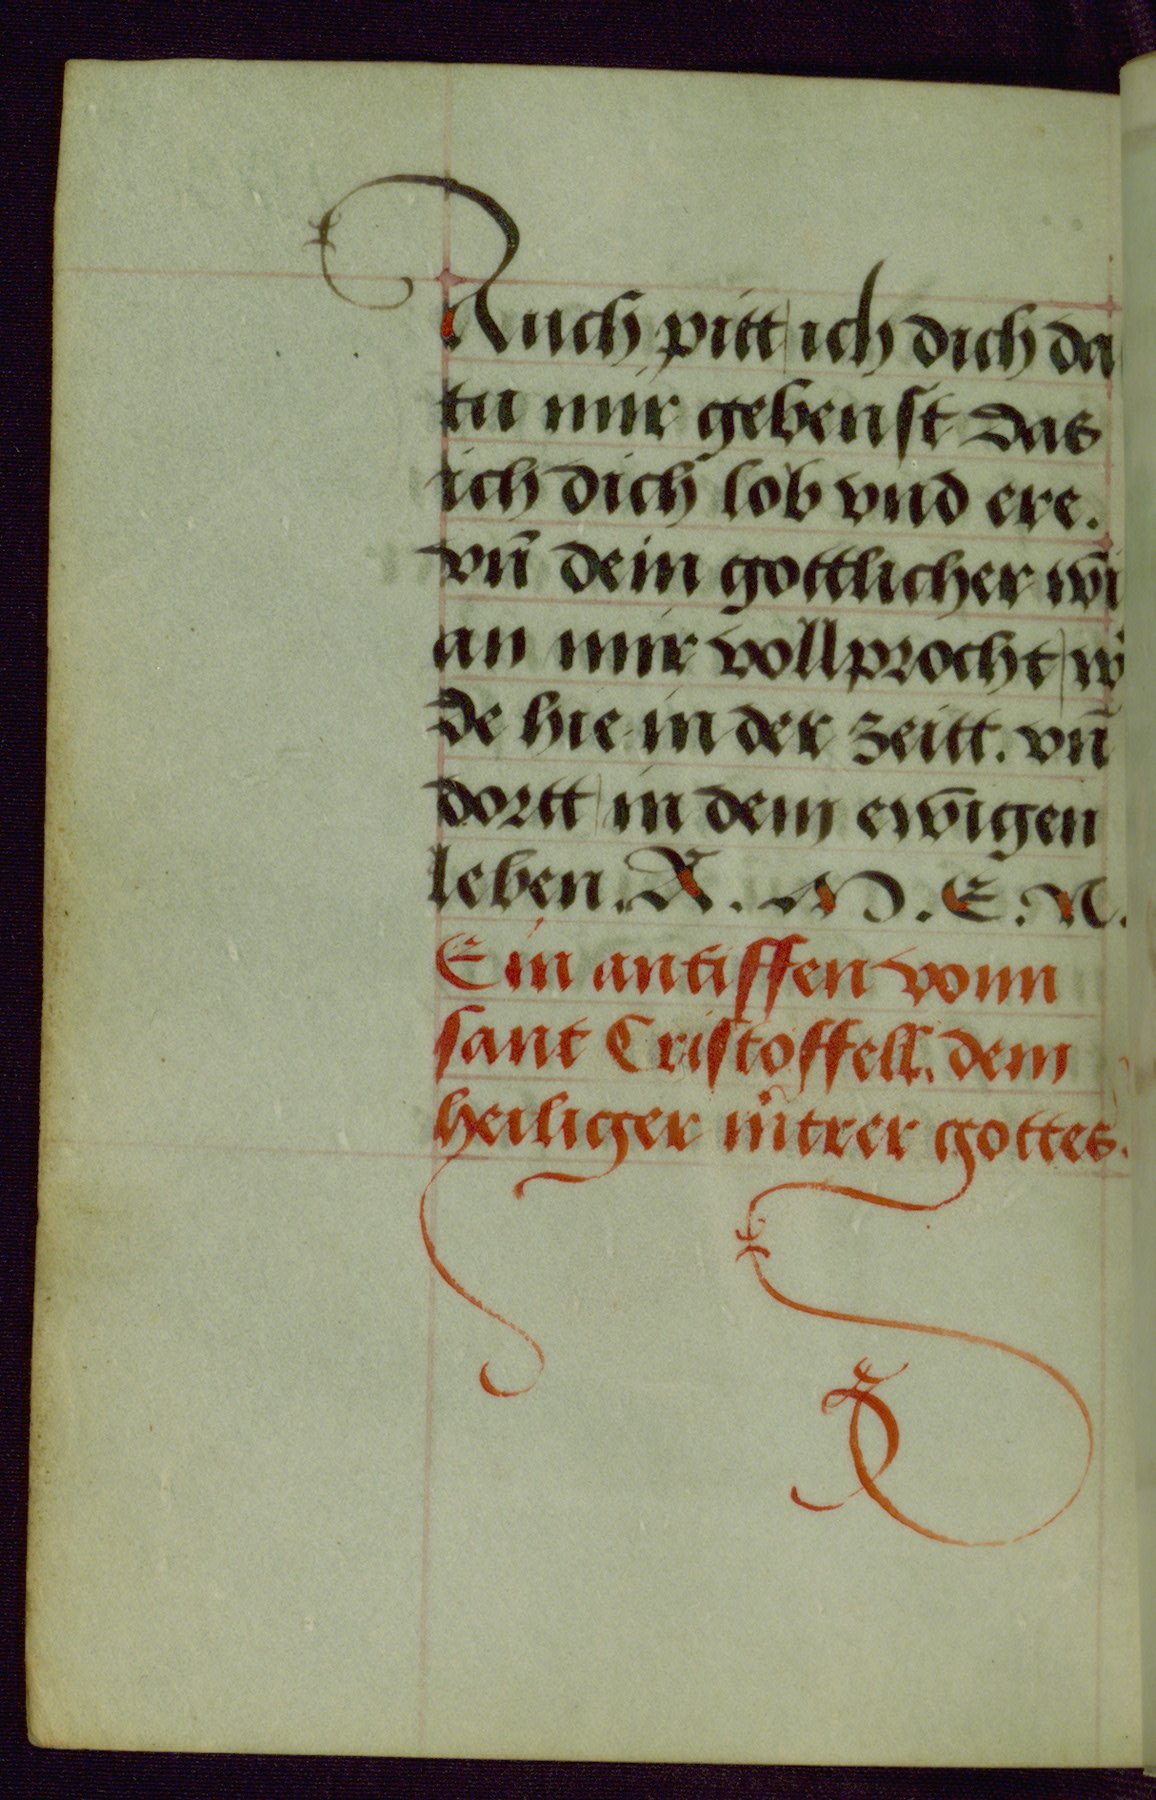 Auch pitt ich dich da
tu mir gebenst das
ich dich lob vnd ere.
vn̄ dein gottlicher wi
an mir vollprocht w
de hie in der zeitt. vn̄
dortt in dem ewigen
leben. A. M. E. N.
Ein antiffen vonn
sant Cristoffell. dem
heiliger m̄trer gottes.